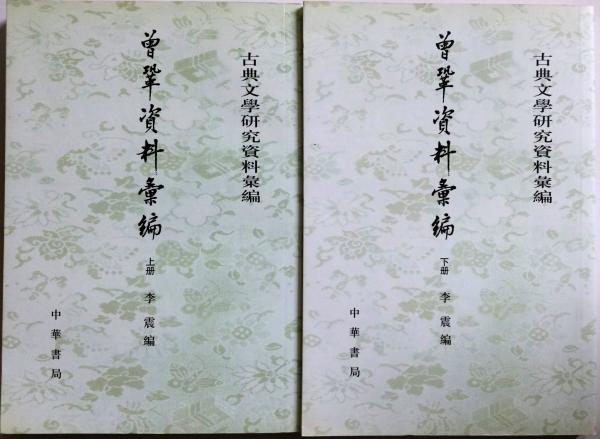 古典文學研究資料彙編
曾鞏資料彙編
上册
李震編
中華書局
古典文學研究資料彙編
曾鞏資料彙編
下册
李震編
中華書局